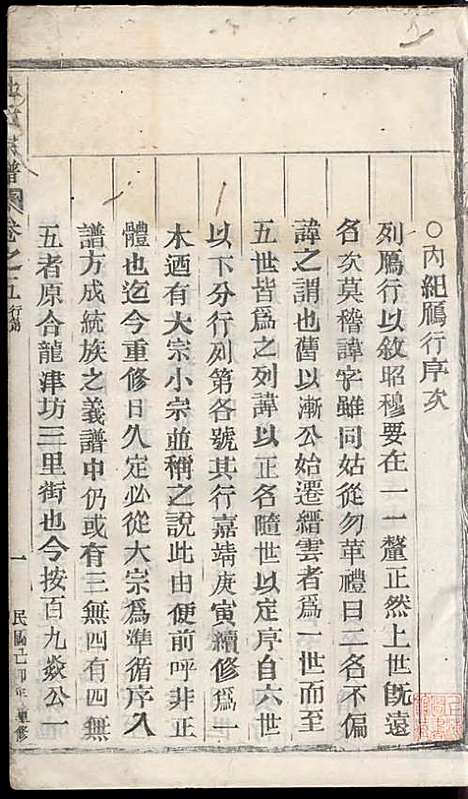 ○內紀鴈行序次
列鴈行以敘昭穆要在一一釐正然上世旣遠
名次莫稽諱字雖同姑從勿革禮曰二名不偏
諱之謂也舊以漸公始遷縉雲者爲一世而至
五世皆爲之列諱以正名隨世以定序自六世
以下分行列第各號其行嘉靖庚寅續修爲一
本迺有大宗小宗並稱之說此由便前呼非正
體也迄今重修日久定必從大宗爲準循序入
譜方成統族之義譜中仍或有三無四有四無
五者原合龍津坊三里街也今按百九燚公一
族譜 卷之五 行第 一 民國己卯年重修